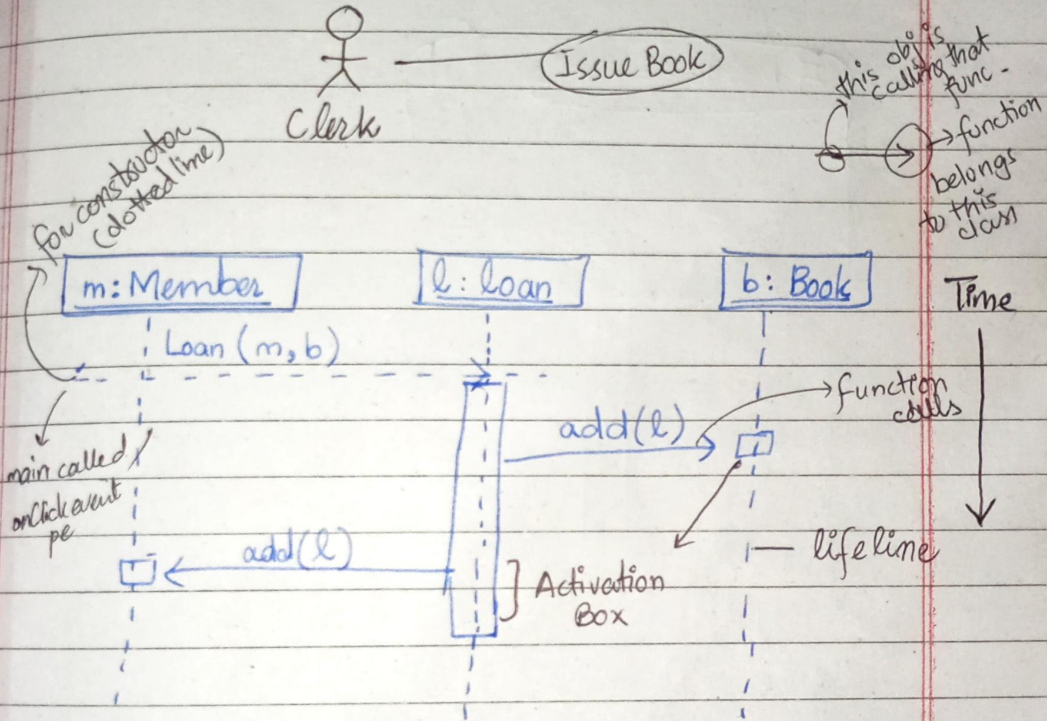 Issue Book
Clerk
this obj is
calling that
func.
function
belongs
to this
class
for constructor
(dotted line)
m: Member
l: loan
b: Book
Time
Loan (m, b)
function
calls
add(l)
main called
onClick event
pe
add(l)
lifeline
Activation
Box